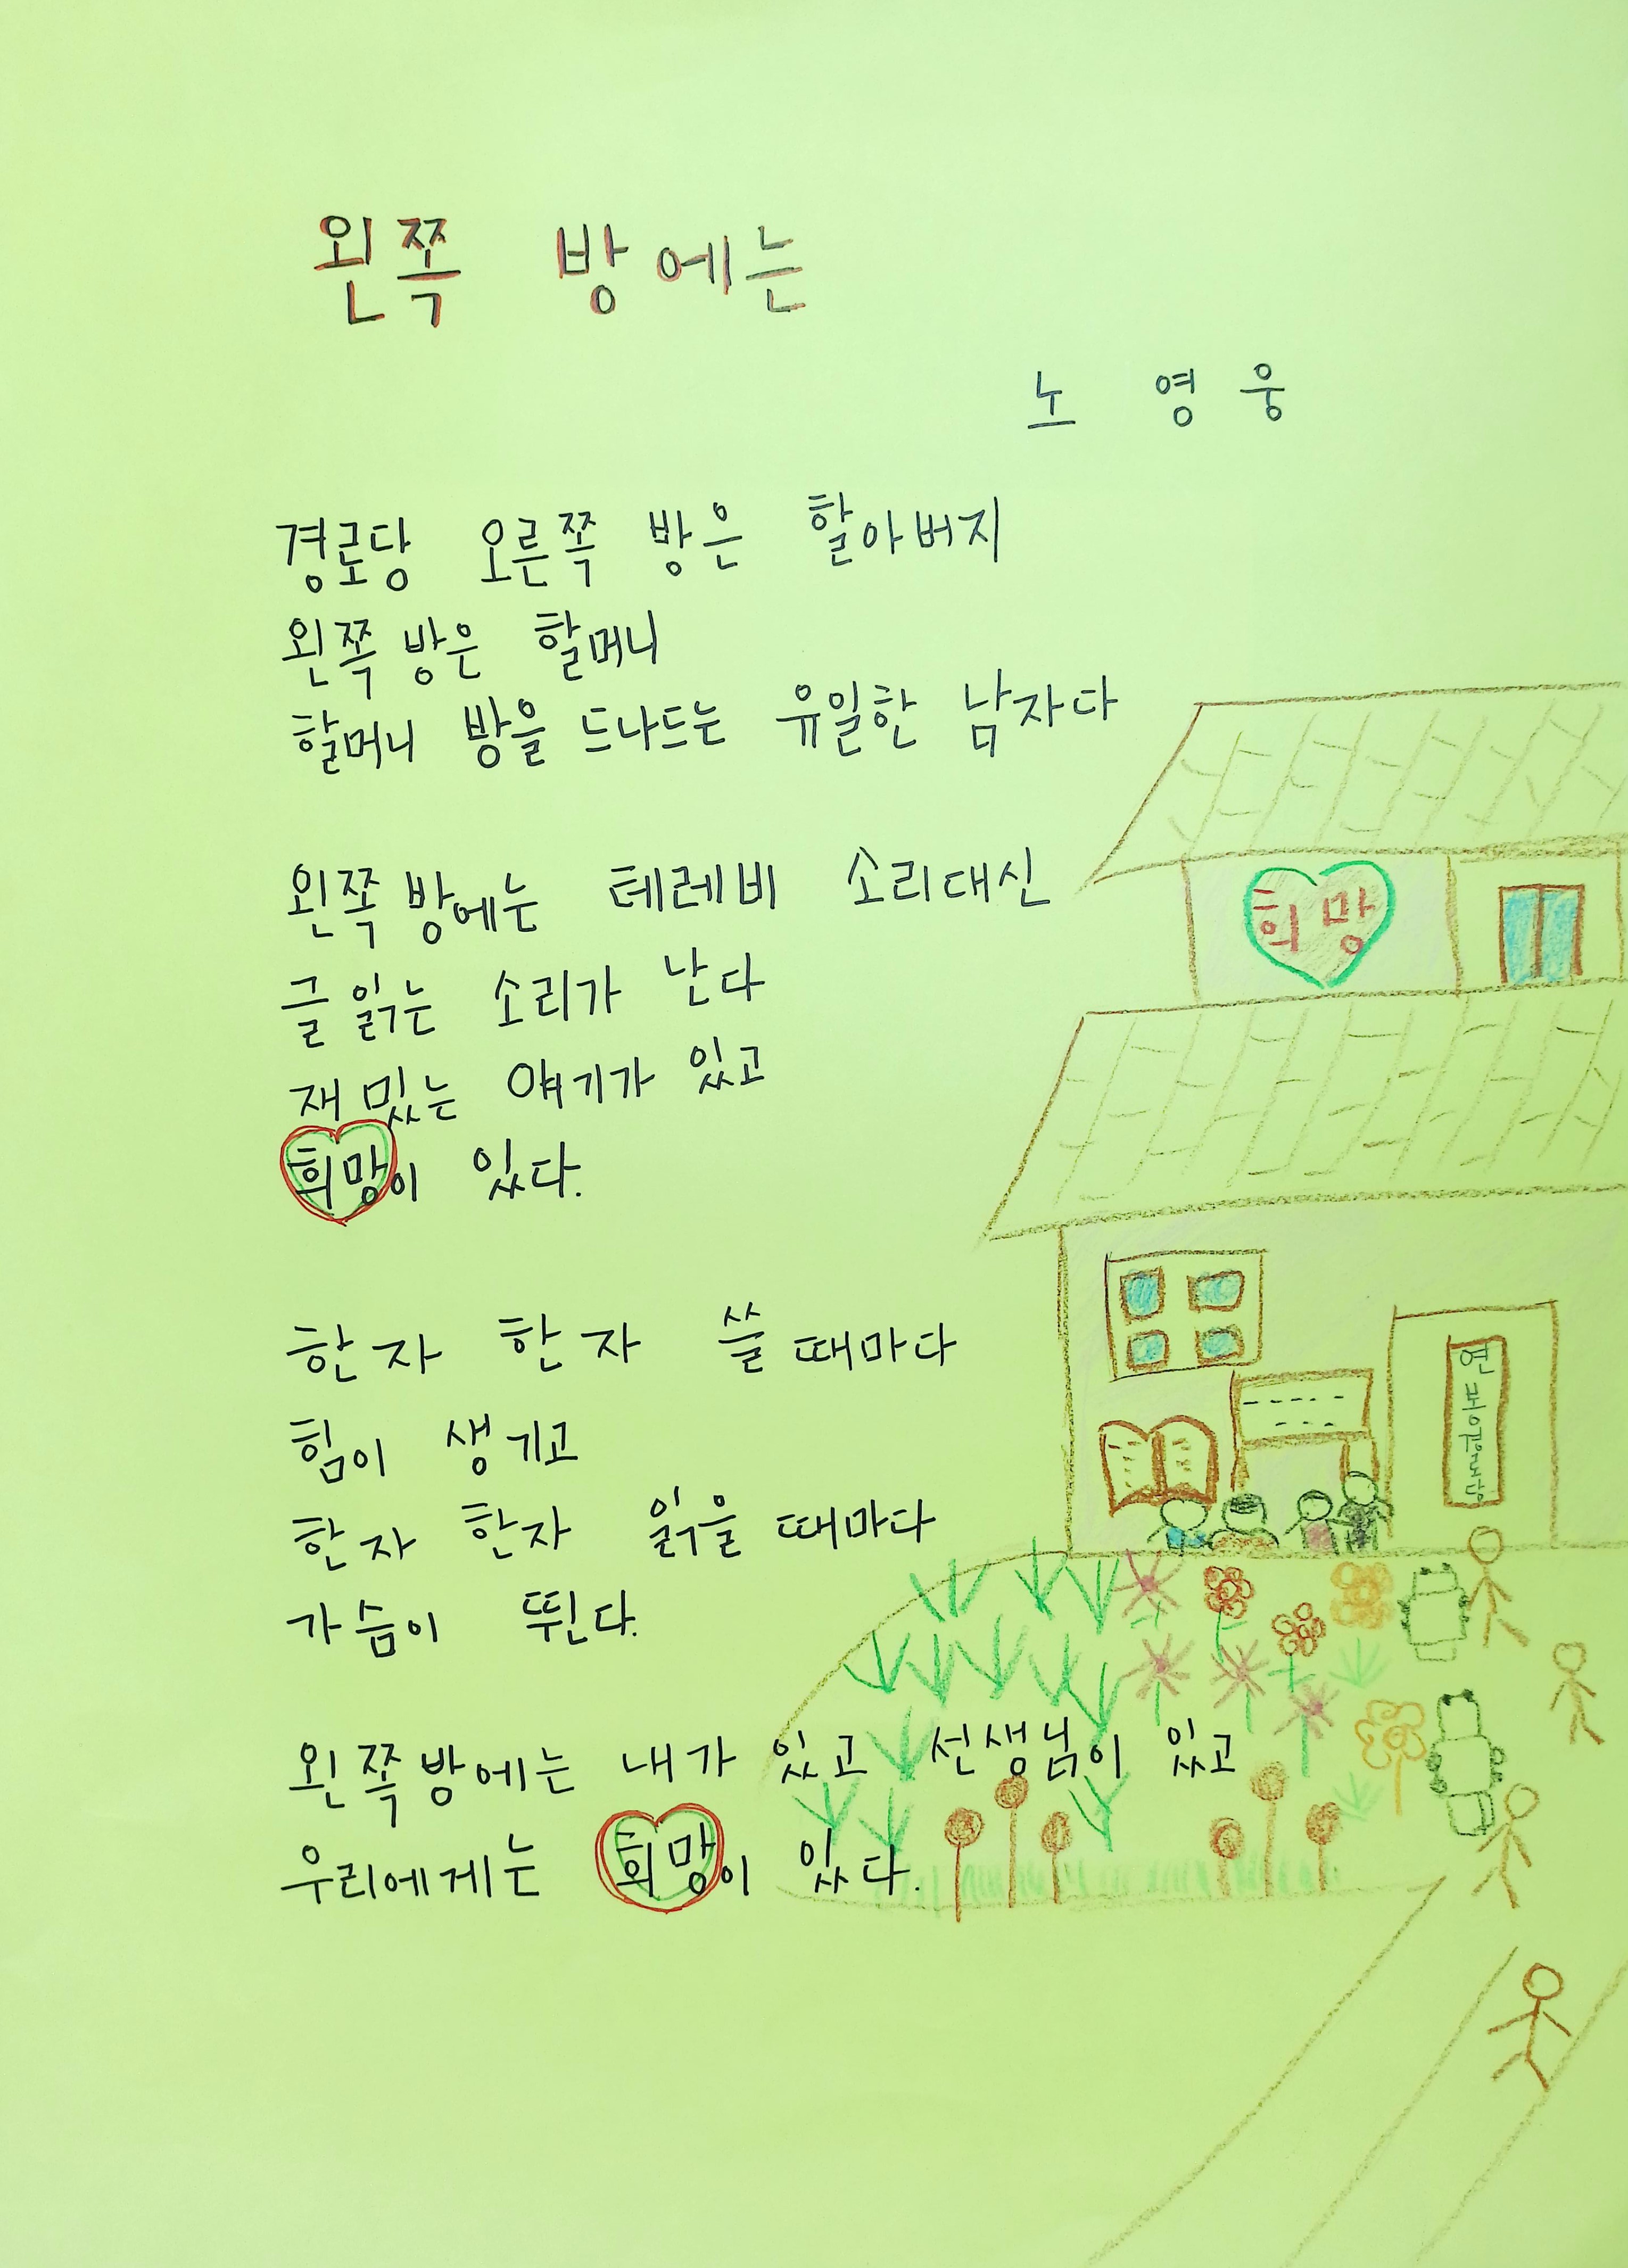 왼쪽 방에는
노 영웅
경로당 오른쪽 방은 할아버지
왼쪽 방은 할머니
할머니 방을 드나드는 유일한 남자다
왼쪽 방에는 테레비 소리대신
글 읽는 소리가 난다
재밌는 얘기가 있고
희망이 있다.
한자 한자 쓸 때마다
힘이 생기고
한자 한자 읽을 때마다
가슴이 뛴다.
왼쪽 방에는 내가 있고 선생님이 있고
우리에게는 희망이 있다.
희망